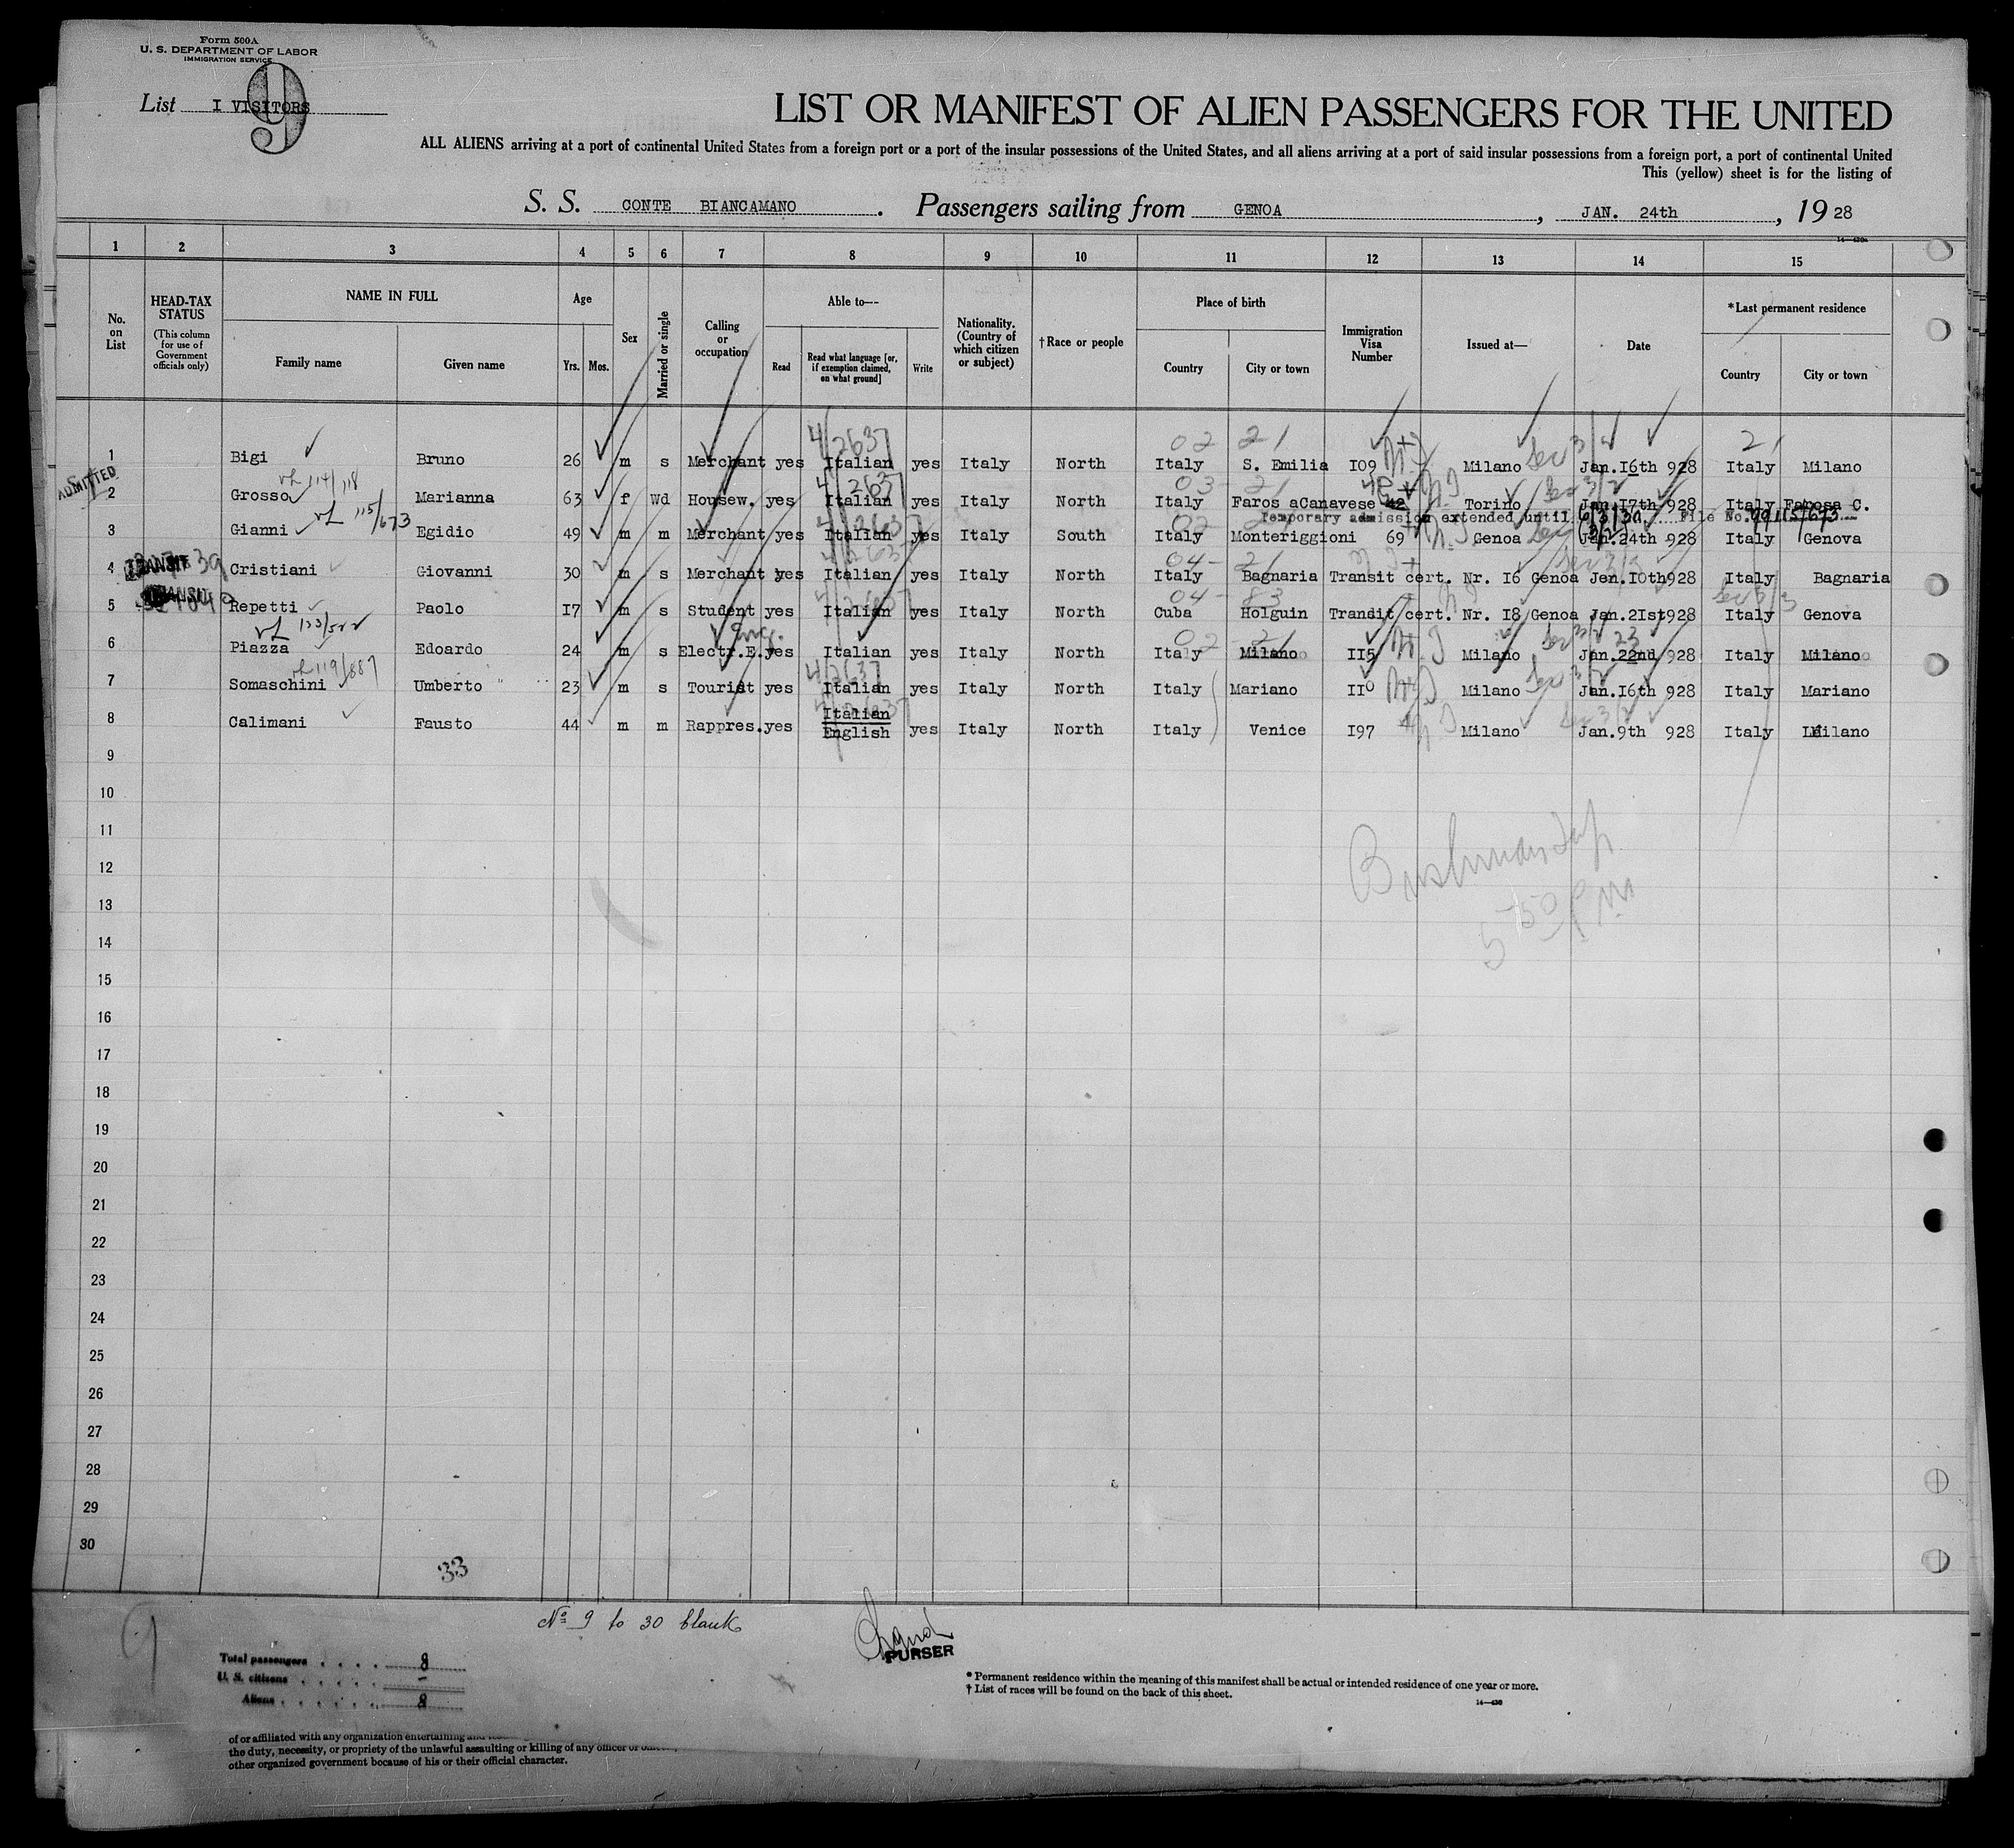 Form 500A
U. S. DEPARTMENT OF LABOR
IMMIGRATION SERVICE
9
List I VISITORS
LIST OR MANIFEST OF ALIEN PASSENGERS FOR THE UNITED
ALL ALIENS arriving at a port of continental United States from a foreign port or a port of the insular possessions of the United States, and all aliens arriving at a port of said insular possessions from a foreign port, a port of continental United
This (yellow) sheet is for the listing of
S. S. CONTE BIANCAMANO. Passengers sailing from GENOA, JAN. 24th, 1928
1 2 3 4 5 6 7 8 9 10 11 12 13 14 15
No. on List
HEAD-TAX STATUS (This column for use of Government officials only)
NAME IN FULL
Family name Given name
Age
Yrs. Mos.
Sex
Married or single
Calling or occupation
Able to—
Read Read what language [or, if exemption claimed, on what ground] Write
Nationality. (Country of which citizen or subject)
†Race or people
Place of birth
Country City or town
Immigration Visa Number
Issued at—
Date
*Last permanent residence
Country City or town
02 21 21
1 Bigi Bruno 26 m s Merchant yes Italian yes Italy North Italy S. Emilia I09 Milano Jan.I6th 928 Italy Milano
ADMITTED
03-21
2 Grosso Marianna 63 f Wd Housew. yes Italian yes Italy North Italy Faros aCanavese 42 Torino Jan.I7th 928 Italy Farosa C.
115/673
Temporary admission extended until 6/3/30 File No. 99115/673
3 Gianni Egidio 49 m m Merchant yes Italian yes Italy South Italy Monteriggioni 69 Genoa Jan.24th 928 Italy Genova
04-21
TRANSIT
4 Cristiani Giovanni 30 m s Merchant yes Italian yes Italy North Italy Bagnaria Transit cert. Nr. I6 Genoa Jen.I0th928 Italy Bagnaria
04-83
TRANSIT
5 Repetti Paolo I7 m s Student yes Italian yes Italy North Cuba Holguin Transit cert. Nr. I8 Genoa Jan.2Ist928 Italy Genova
Eng. 02-21 23
6 Piazza Edoardo 24 m s Electr.E.yes Italian yes Italy North Italy Milano II5 Milano Jan.22nd 928 Italy Milano
119/887
7 Somaschini Umberto 23 m s Tourist yes Italian yes Italy North Italy Mariano II0 Milano Jan.I6th 928 Italy Mariano
8 Calimani Fausto 44 m m Rappres. yes Italian English yes Italy North Italy Venice I97 Milano Jan.9th 928 Italy Milano
9
10
11
12
13
14
15
16
17
18
19
20
21
22
23
24
25
26
27
28
29
30
5 50 PM
33
9
No 9 to 30 blank
PURSER
Total passengers . . . . 8
U. S. citizens . . . . . –
Aliens . . . . . . 8
* Permanent residence within the meaning of this manifest shall be actual or intended residence of one year or more.
† List of races will be found on the back of this sheet.
14—430
of or affiliated with any organization entertaining and
the duty, necessity, or propriety of the unlawful assaulting or killing of any officer or
other organized government because of his or their official character.